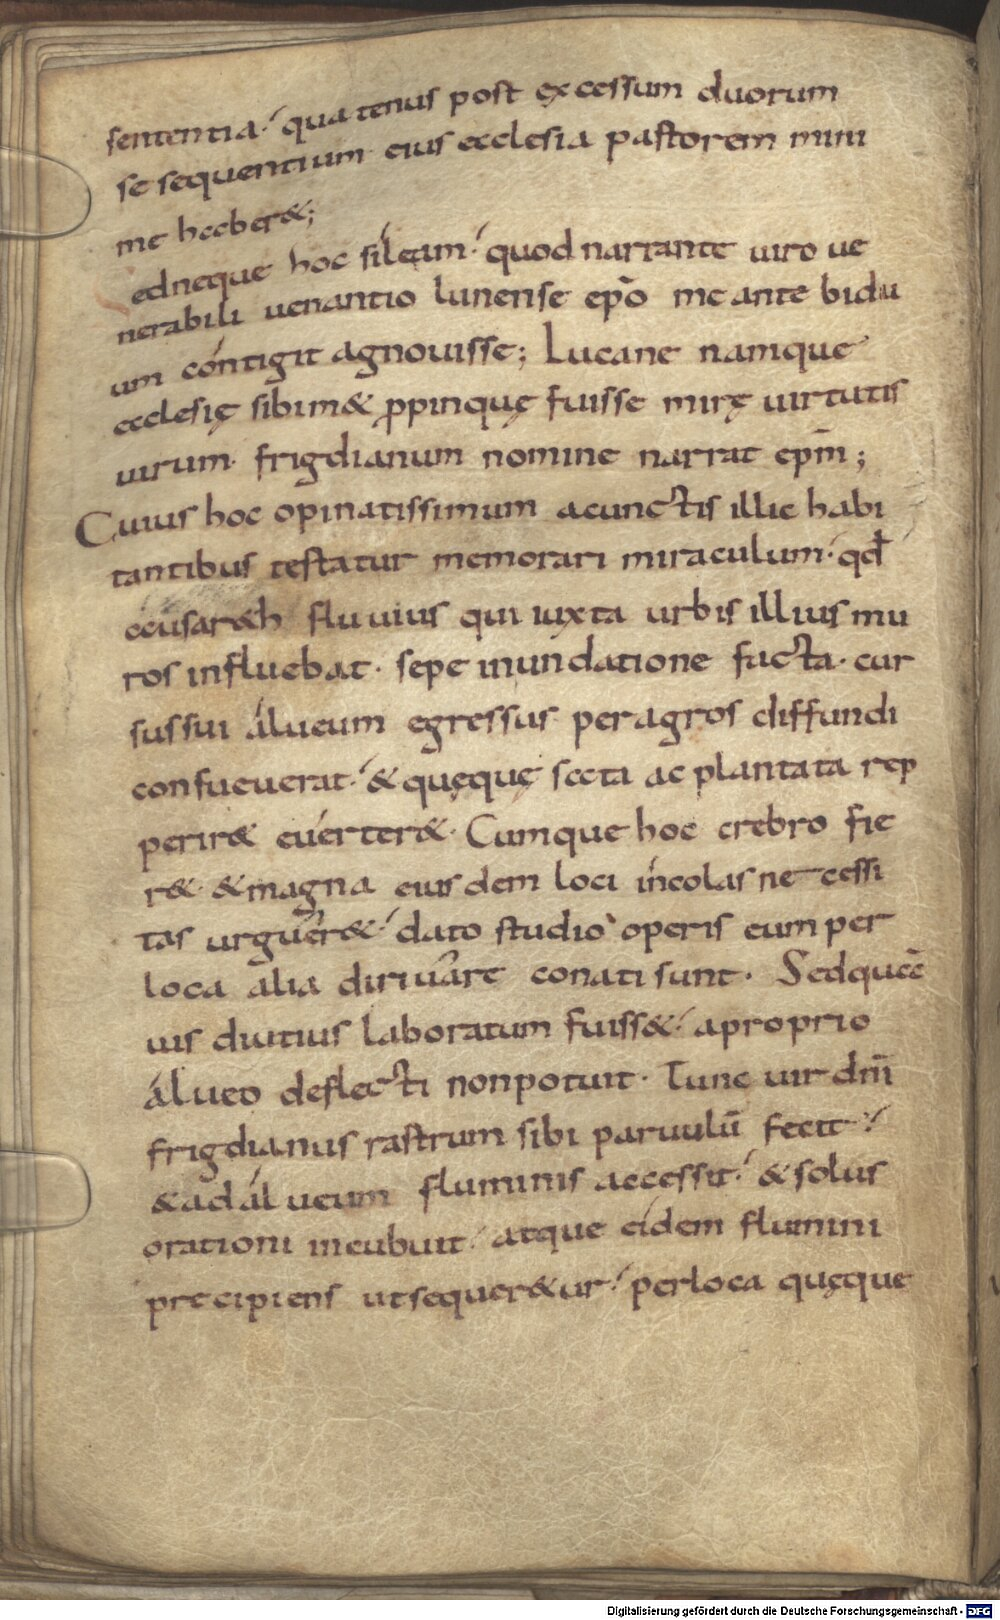 sententia· quatenus post excessum duorum
se sequentium eius ecclesia pastorem mini
me haber&;
ed neque hoc sileam· quod narrante uiro ue
nerabili uenantio lunense epo me ante bidu
um contigit agnouisse; Lucane namque
ecclesię sibim& ppinquę fuisse mirę uirtutis
uirum· frigdianum nomine narrat epm;
Cuius hoc opinatissimum acunctis illic habi
tantibus testatur memorari miraculum· qd
ausar&h fluuius qui iuxta urbis illius mu
ros influebat· sepe inundatione facta· cur
sus sui álueum egressus per agros diffundi
consueuerat· & quęque sata ac plantata rep
perir& euerter&· Cumque hoc crebro fie
r& & magna eiusdem loci incolas necessi
tas urguer&· dato studio operis eum per
loca alia diriuare conati sunt· Sed qua
uis diutius laboratum fuiss&· a proprio
álueo deflecti non potuit· Tunc uir dni
frigdianus rastrum sibi paruulū fecit·
& ad álueum fluminis accessit· & solus
orationi incubuit· atque eidem flumini
precipiens ut sequer&ur· per loca quęque
Digitalisierung gefördert durch die Deutsche Forschungsgemeinschaft - DFG